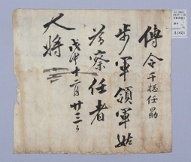 傳令千摠任勗
步軍領軍姑
爲察任者
戊申十二月廿三日
大將